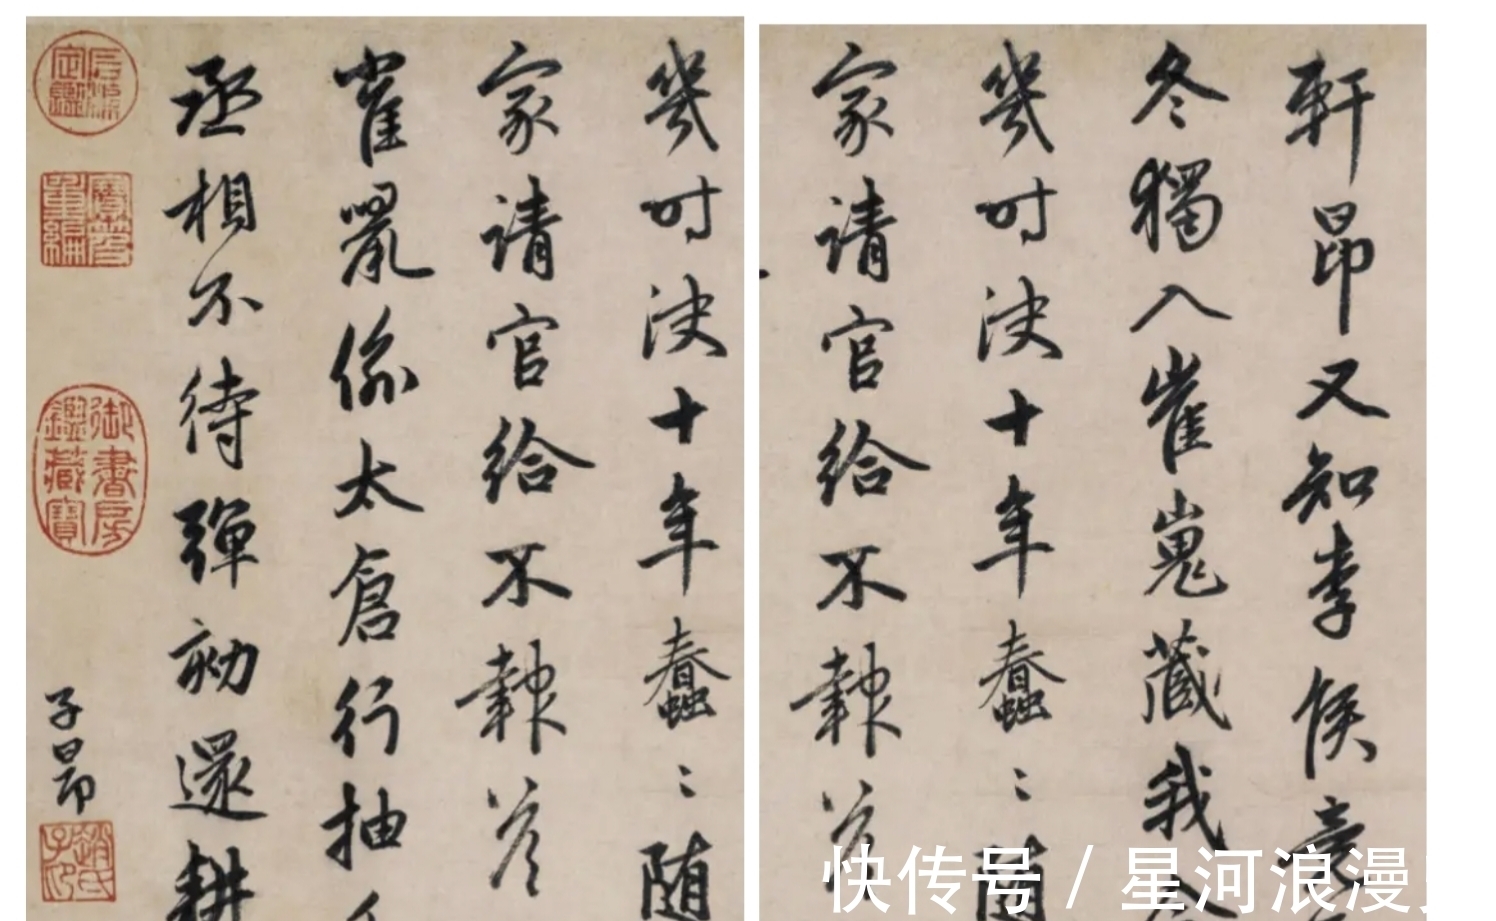 軒昂又知李侯
冬獨入崔嵬藏我
幾时決十年蠢〻隨
家請官給不報答
幾时決十年蠢〻隨
家請官給不報答
雀鼠係太倉行抽
丞相不待彈劾還耕
子昂
御書房鑑藏寶
石渠定鑑
寶笈重編
趙氏子昂
快传号 / 星河浪漫